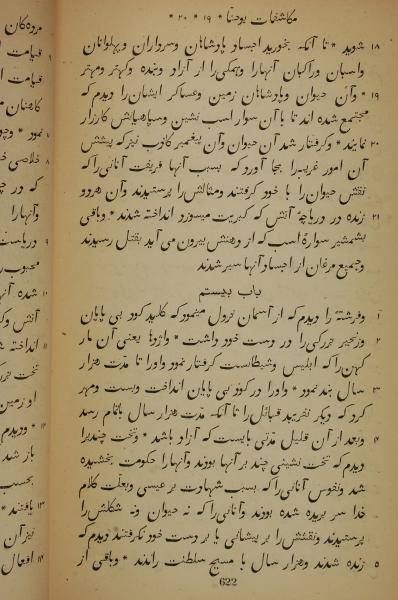 مکاشفات یوحنا * ۱۹ * ۲۰ *
۱۸ شوید * تا آنکه بخورید اجساد پادشاهان وسرداران وپهلوانان
واسبان وراکبان آنها را وهمکی را از آزاد وبنده وکهتر ومهتر
۱۹ * وآن حیوان وپادشاهان زمین وعساکر ایشان را دیدم که
مجتمع شده اند تا با آن سوار اسب نشین وسپاهیانش کارزار
۲۰ نمایند * وکرفتار شد آن حیوان وآن پیغمبر کاذب نیز که پیشش
آن امور غریبه را بجا آورد که بسبب آنها فریفت آنانی را که
نقش حیوان را با خود کرفتند ومثالش را پرستیدند وآن هردو
۲۱ زنده در دریاچهٔ آتش که کبریت میسوزد انداخته شدند * وباقی
بشمشیر سوارهٔ اسب که از دهنش بیرون می آید بقتل رسیدند
وجمیع مرغان از اجساد آنها سیر شدند
باب بیستم
۱ وفرشتهٔ را دیدم که از آسمان نزول مینمود که کلید کود بی پایان
۲ وزنجیر بزرکی را در دست خود داشت * واژدها یعنی آن مار
کهن را که ابلیس وشیطانست کرفتار نمود واورا تا مدت هزار
۳ سال بند نمود * واورا در کود بی پایان انداخت وبست ومهر
کرد که دیکر نفریبد قبائل را تا آنکه مدت هزار سال باتمام رسد
۴ وبعد از آن قلیل مدتی بایست که آزاد باشد * وتخت چند را
دیدم که تخت نشینی چند بر آنها بودند وآنها را حکومت بخشیده
شد ونفوس آنانی را که بسبب شهادت بر عیسی وبعلت کلام
خدا سر بریده شده بودند وآنانی را که نه حیوان ونه شکلش را
پرستیدند ونقشش را بر پیشانی یا بر دست خود نکرفتند دیدم که
۵ زنده شدند وهزار سال با مسیح سلطنت راندند * وباقی از
622